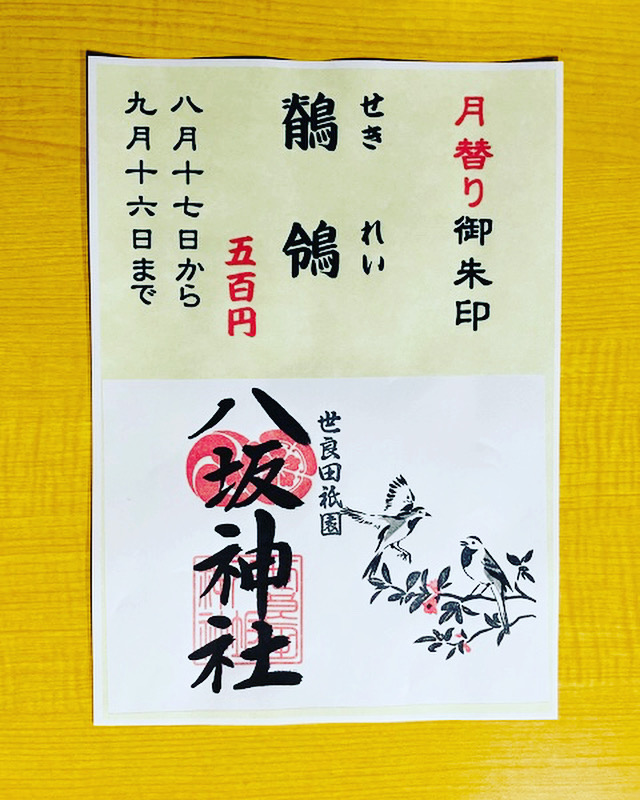 月替り御朱印
せきれい
鶺鴒
五百円
八月十七日から
九月十六日まで
世良田祇園
八坂神社